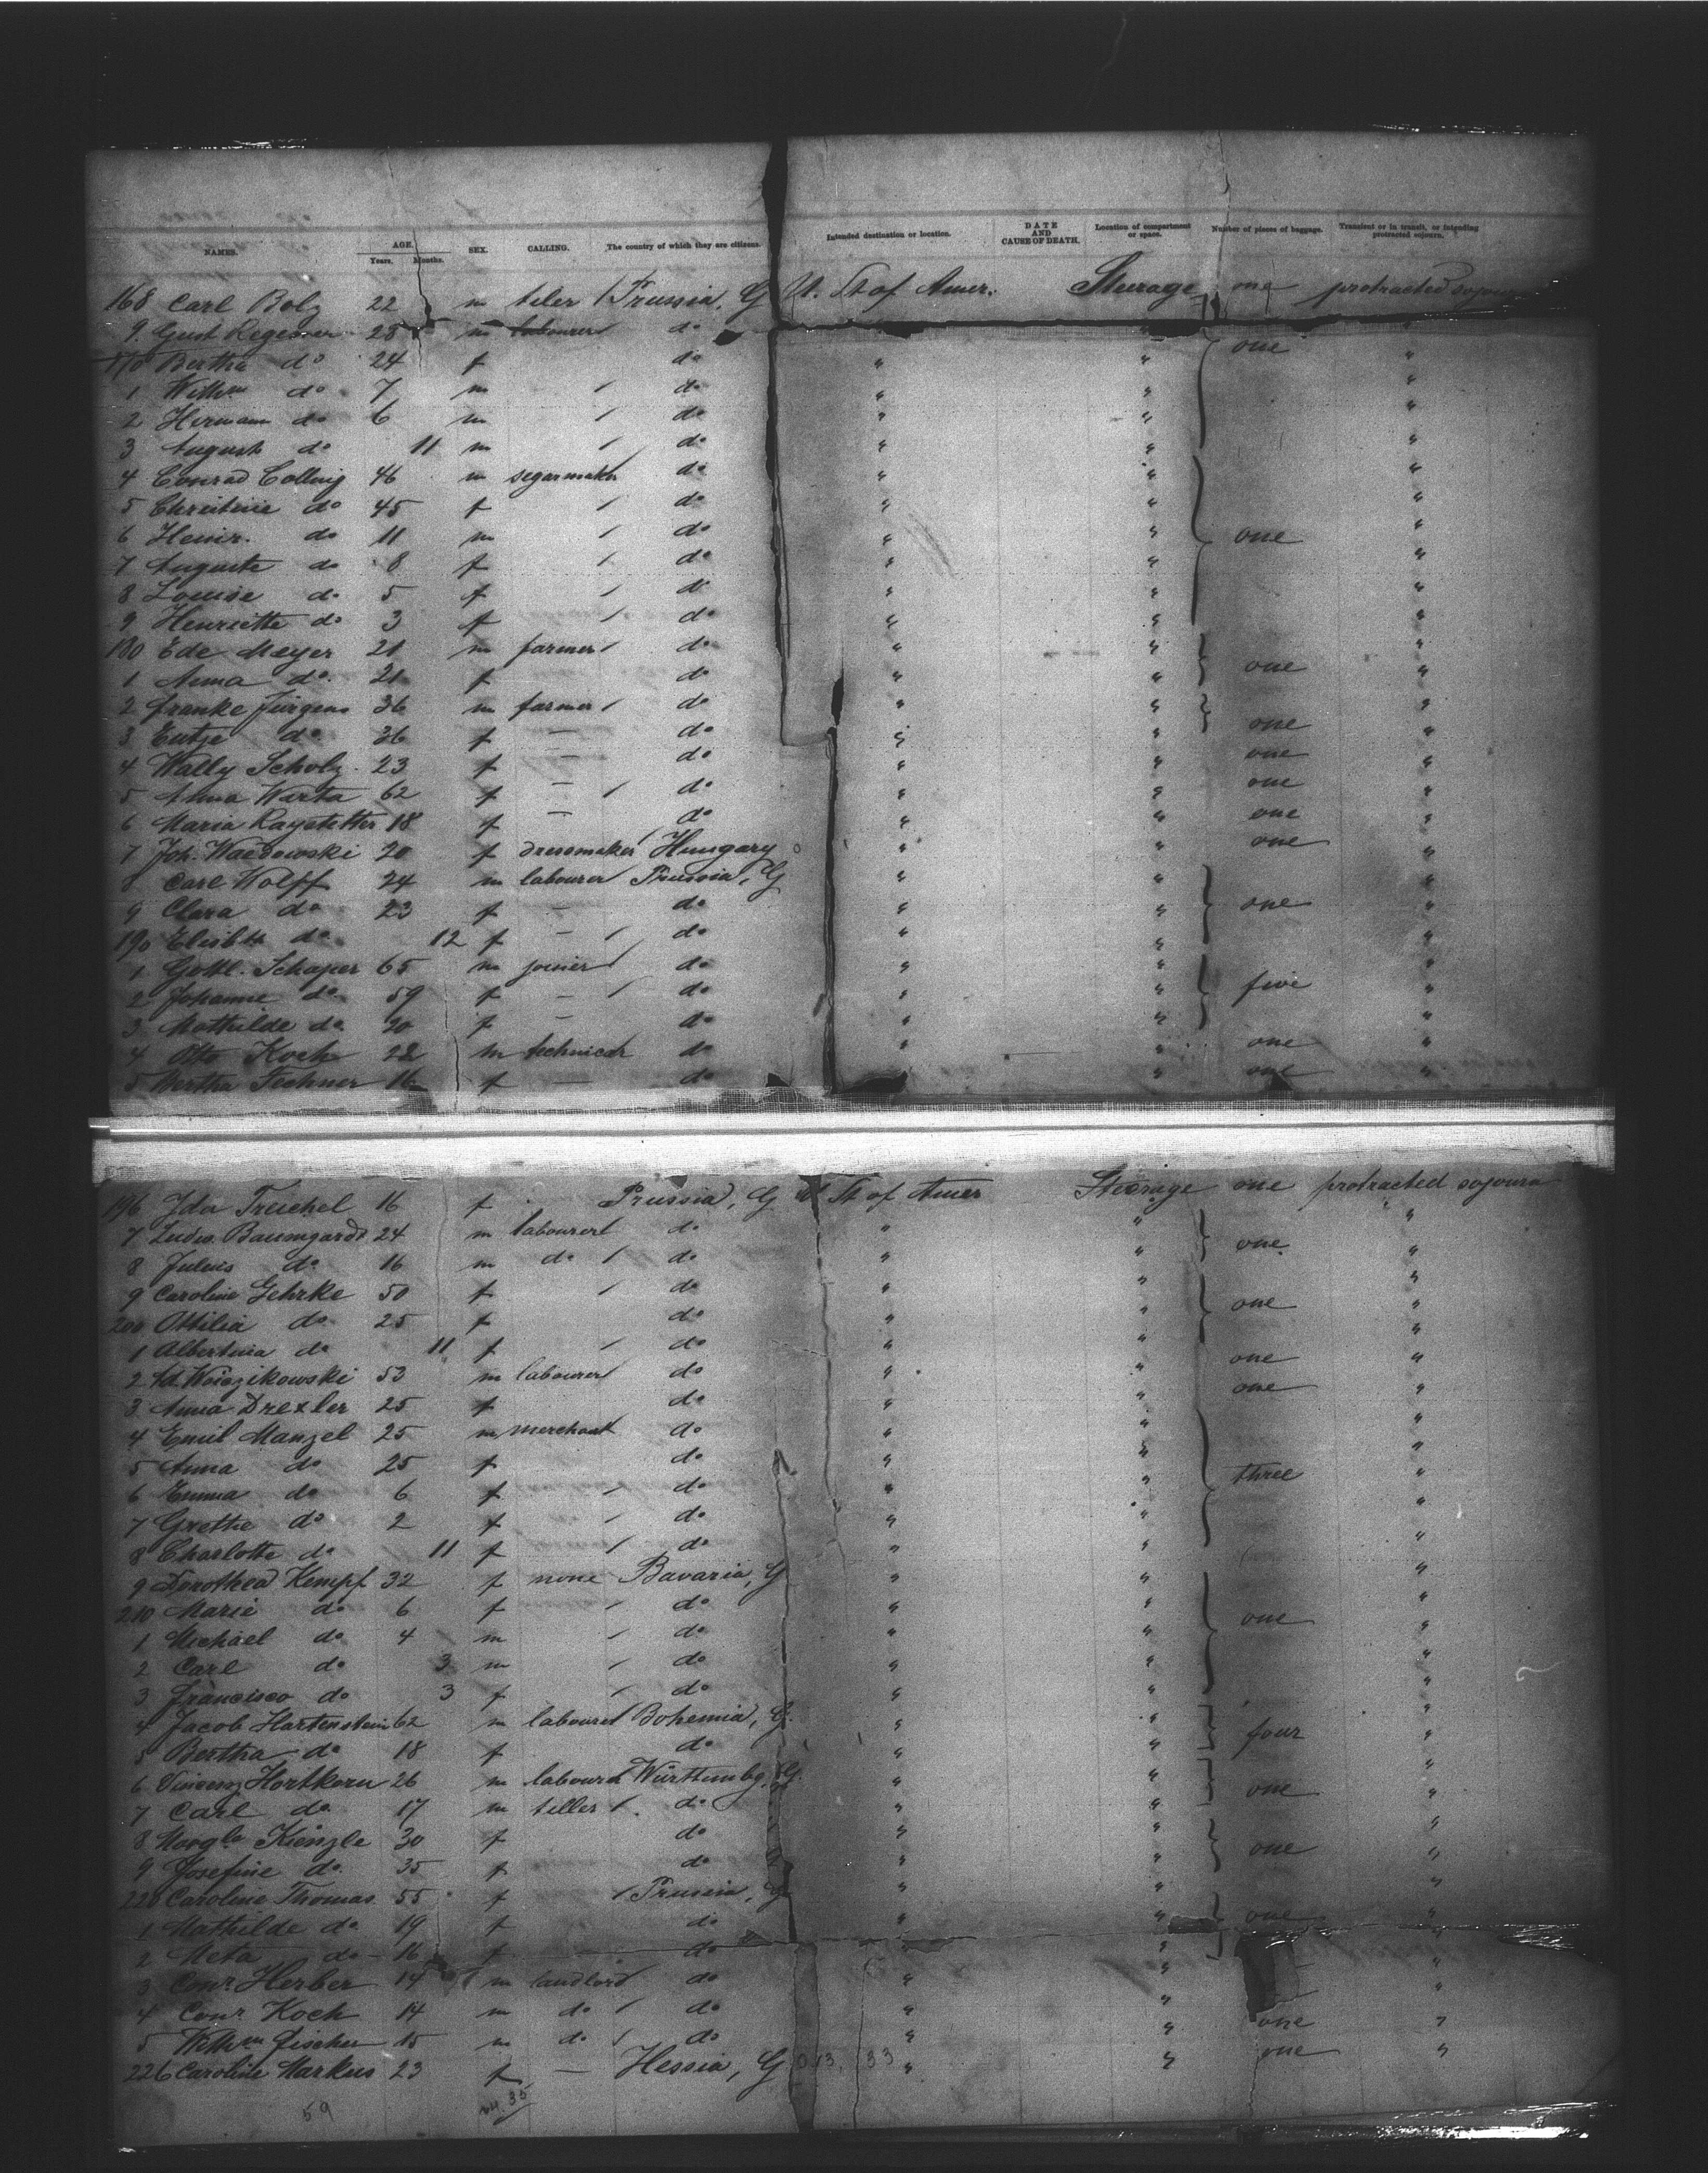 NAMES. AGE. SEX. CALLING. The country of which they are citizens. Intended destination or location. DATE AND CAUSE OF DEATH. Location of compartment or space. Number of pieces of baggage. Transient or in transit, or intending protracted sojourn.
Years. Months.
168 Carl Bolz 22 m tiler Prussia, G U. St of Amer. Steerage one protracted sojourn
9 Gust 28 m labourer do " one "
170 Bertha do 24 f do " " "
1 Wilhm do 7 m do " " "
2 Hermann do 6 m do " " "
3 August do 11 m do " " "
4 Conrad Colling 46 m segarmaker do " " "
5 Christine do 45 f do " " "
6 Heinr. do 11 m do " " one "
7 Auguste do 8 f do " " "
8 Louise do 5 f do " " "
9 Henriette do 3 f do " " "
180 Ede Meyer 21 m farmer do " " one "
1 Anna do 21 f do " " "
2 Franke Jürgens 36 m farmer do " " one "
3 do 36 f — do " " "
4 Wally Scholz 23 f — do " " one "
5 Anna Warta 62 f — do " " one "
6 Maria Raystetter 18 f — do " " one "
7 Joh. 20 f dressmaker Hungary " " one "
8 Carl Wolff 24 m labourer Prussia, G " " "
9 Clara do 23 f — do " " one "
190 Elisbth do 12 f — do " " "
1 Gottl. Schaper 65 m joiner do " " "
2 Johanne do 59 f — do " " five "
3 Mathilde do 20 f — do " " "
4 Otto Koch 22 m do " " one "
5 Bertha Fechner 16 f — do " one "
196 Ida Treichel 16 f Prussia, G U St of Amer Steerage one protracted sojourn
7 Ludw. Baumgardt 24 m labourer do " " "
8 Julius do 16 m do do " " one "
9 Caroline Gehrke 50 f do " " "
200 Ottilia do 25 f do " " one "
1 Albertina do 11 f do " " "
2 Ad. 53 m labourer do " " one "
3 Anna Drexler 25 f do " " one "
4 Emil Manzel 25 m merchant do " " "
5 Anna do 25 f do " " "
6 Emma do 6 f do " " three "
7 Grethe do 2 f do " " "
8 Charlotte do 11 f do " " "
9 Dorothea Kempf 32 f none Bavaria, G " " "
210 Marie do 6 f do " " "
1 Michael do 4 m do " " one "
2 Carl do 3 m do " " "
3 Francisco do 3 f do " " "
4 Jacob Hartenstein 62 m labourer Bohemia, G. " " "
5 Bertha do 18 f do " " four "
6 Vincenz Hortkorn 26 m labourer Württembg, G. " " "
7 Carl do 17 m teller do " " one "
8 Kienzle 30 f do " " "
9 Josefine do 35 f do " " one "
220 Caroline Thomas 55 f Prussia, G " " "
1 Mathilde do 19 f do " " one "
2 Meta do 16 f do " " "
3 Conr Herber 14 m landlord do " " "
4 Conr. Koch 14 m do do " " one "
5 Wilhm Fischer 15 m do do " " one "
226 Caroline Markus 23 f — Hessia, G " " "
59